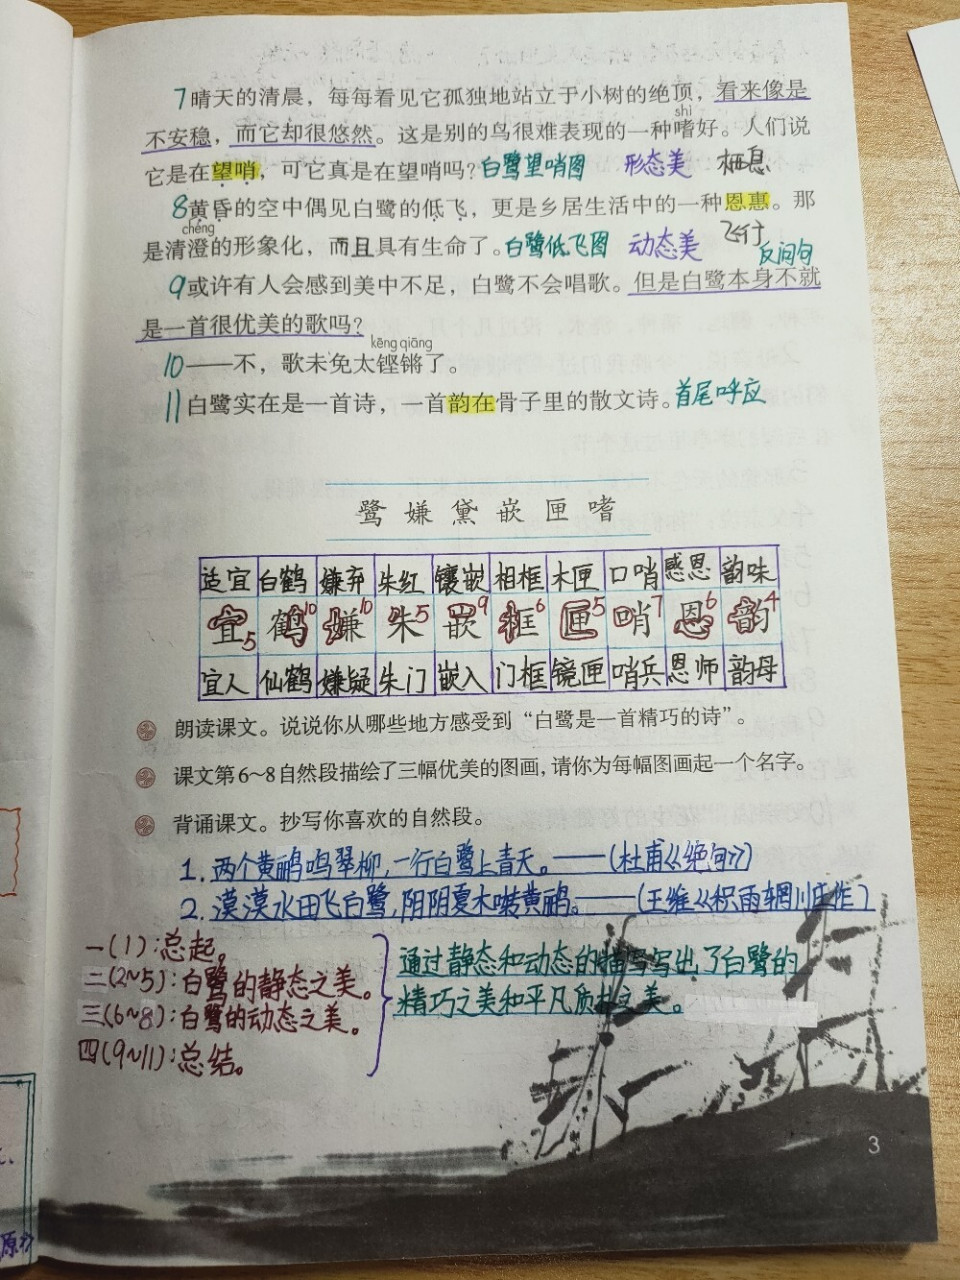 7晴天的清晨，每每看见它孤独地站立于小树的绝顶，看来像是
shì
不安稳，而它却很悠然。这是别的鸟很难表现的一种嗜好。人们说
它是在望哨，可它真是在望哨吗？白鹭望哨图 形态美 栖息
8黄昏的空中偶见白鹭的低飞，更是乡居生活中的一种恩惠。那
chéng
是清澄的形象化，而且具有生命了。白鹭低飞图 动态美 飞行 反问句
9或许有人会感到美中不足，白鹭不会唱歌。但是白鹭本身不就
是一首很优美的歌吗？
kēng qiāng
10——不，歌未免太铿锵了。
11白鹭实在是一首诗，一首韵在骨子里的散文诗。首尾呼应
鹭 嫌 黛 嵌 匣 嗜
适宜 白鹤 嫌弃 朱红 镶嵌 相框 木匣 口哨 感恩 韵味
宜5 鹤10 嫌10 朱5 嵌9 框6 匣5 哨7 恩6 韵4
宜人 仙鹤 嫌疑 朱门 嵌入 门框 镜匣 哨兵 恩师 韵母
朗读课文。说说你从哪些地方感受到“白鹭是一首精巧的诗”。
课文第6~8自然段描绘了三幅优美的图画，请你为每幅图画起一个名字。
背诵课文。抄写你喜欢的自然段。
1.两个黄鹂鸣翠柳，一行白鹭上青天。——（杜甫《绝句》）
2.漠漠水田飞白鹭，阴阴夏木啭黄鹂。——（王维《积雨辋川庄作）
一(1)：总起。
二(2~5)：白鹭的静态之美。
三(6~8)：白鹭的动态之美。
四(9~11)：总结。
通过静态和动态的描写写出了白鹭的
精巧之美和平凡质朴之美。
3
原》